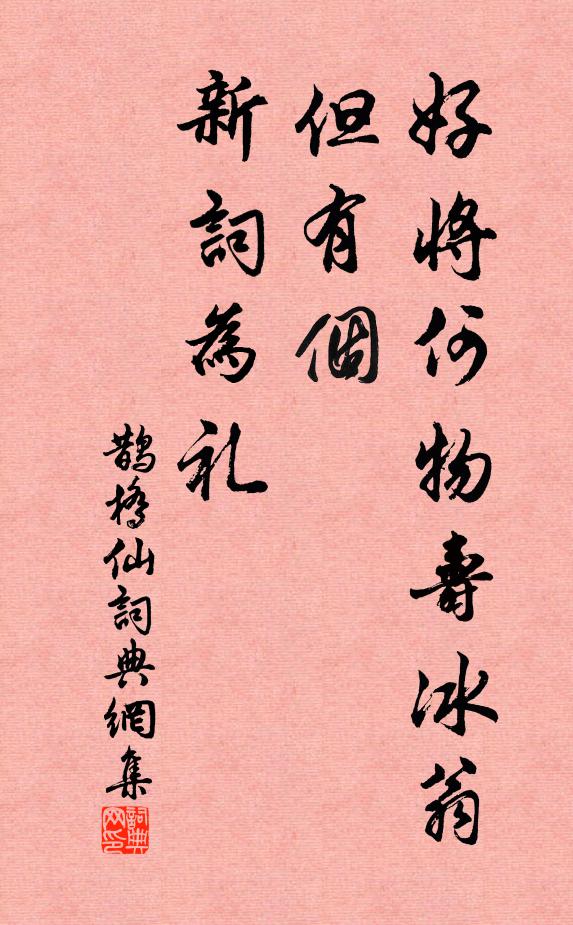 好將何物壽冰翁
但有個
新詞為礼
鹊橋仙詞典網集
詞典
网印